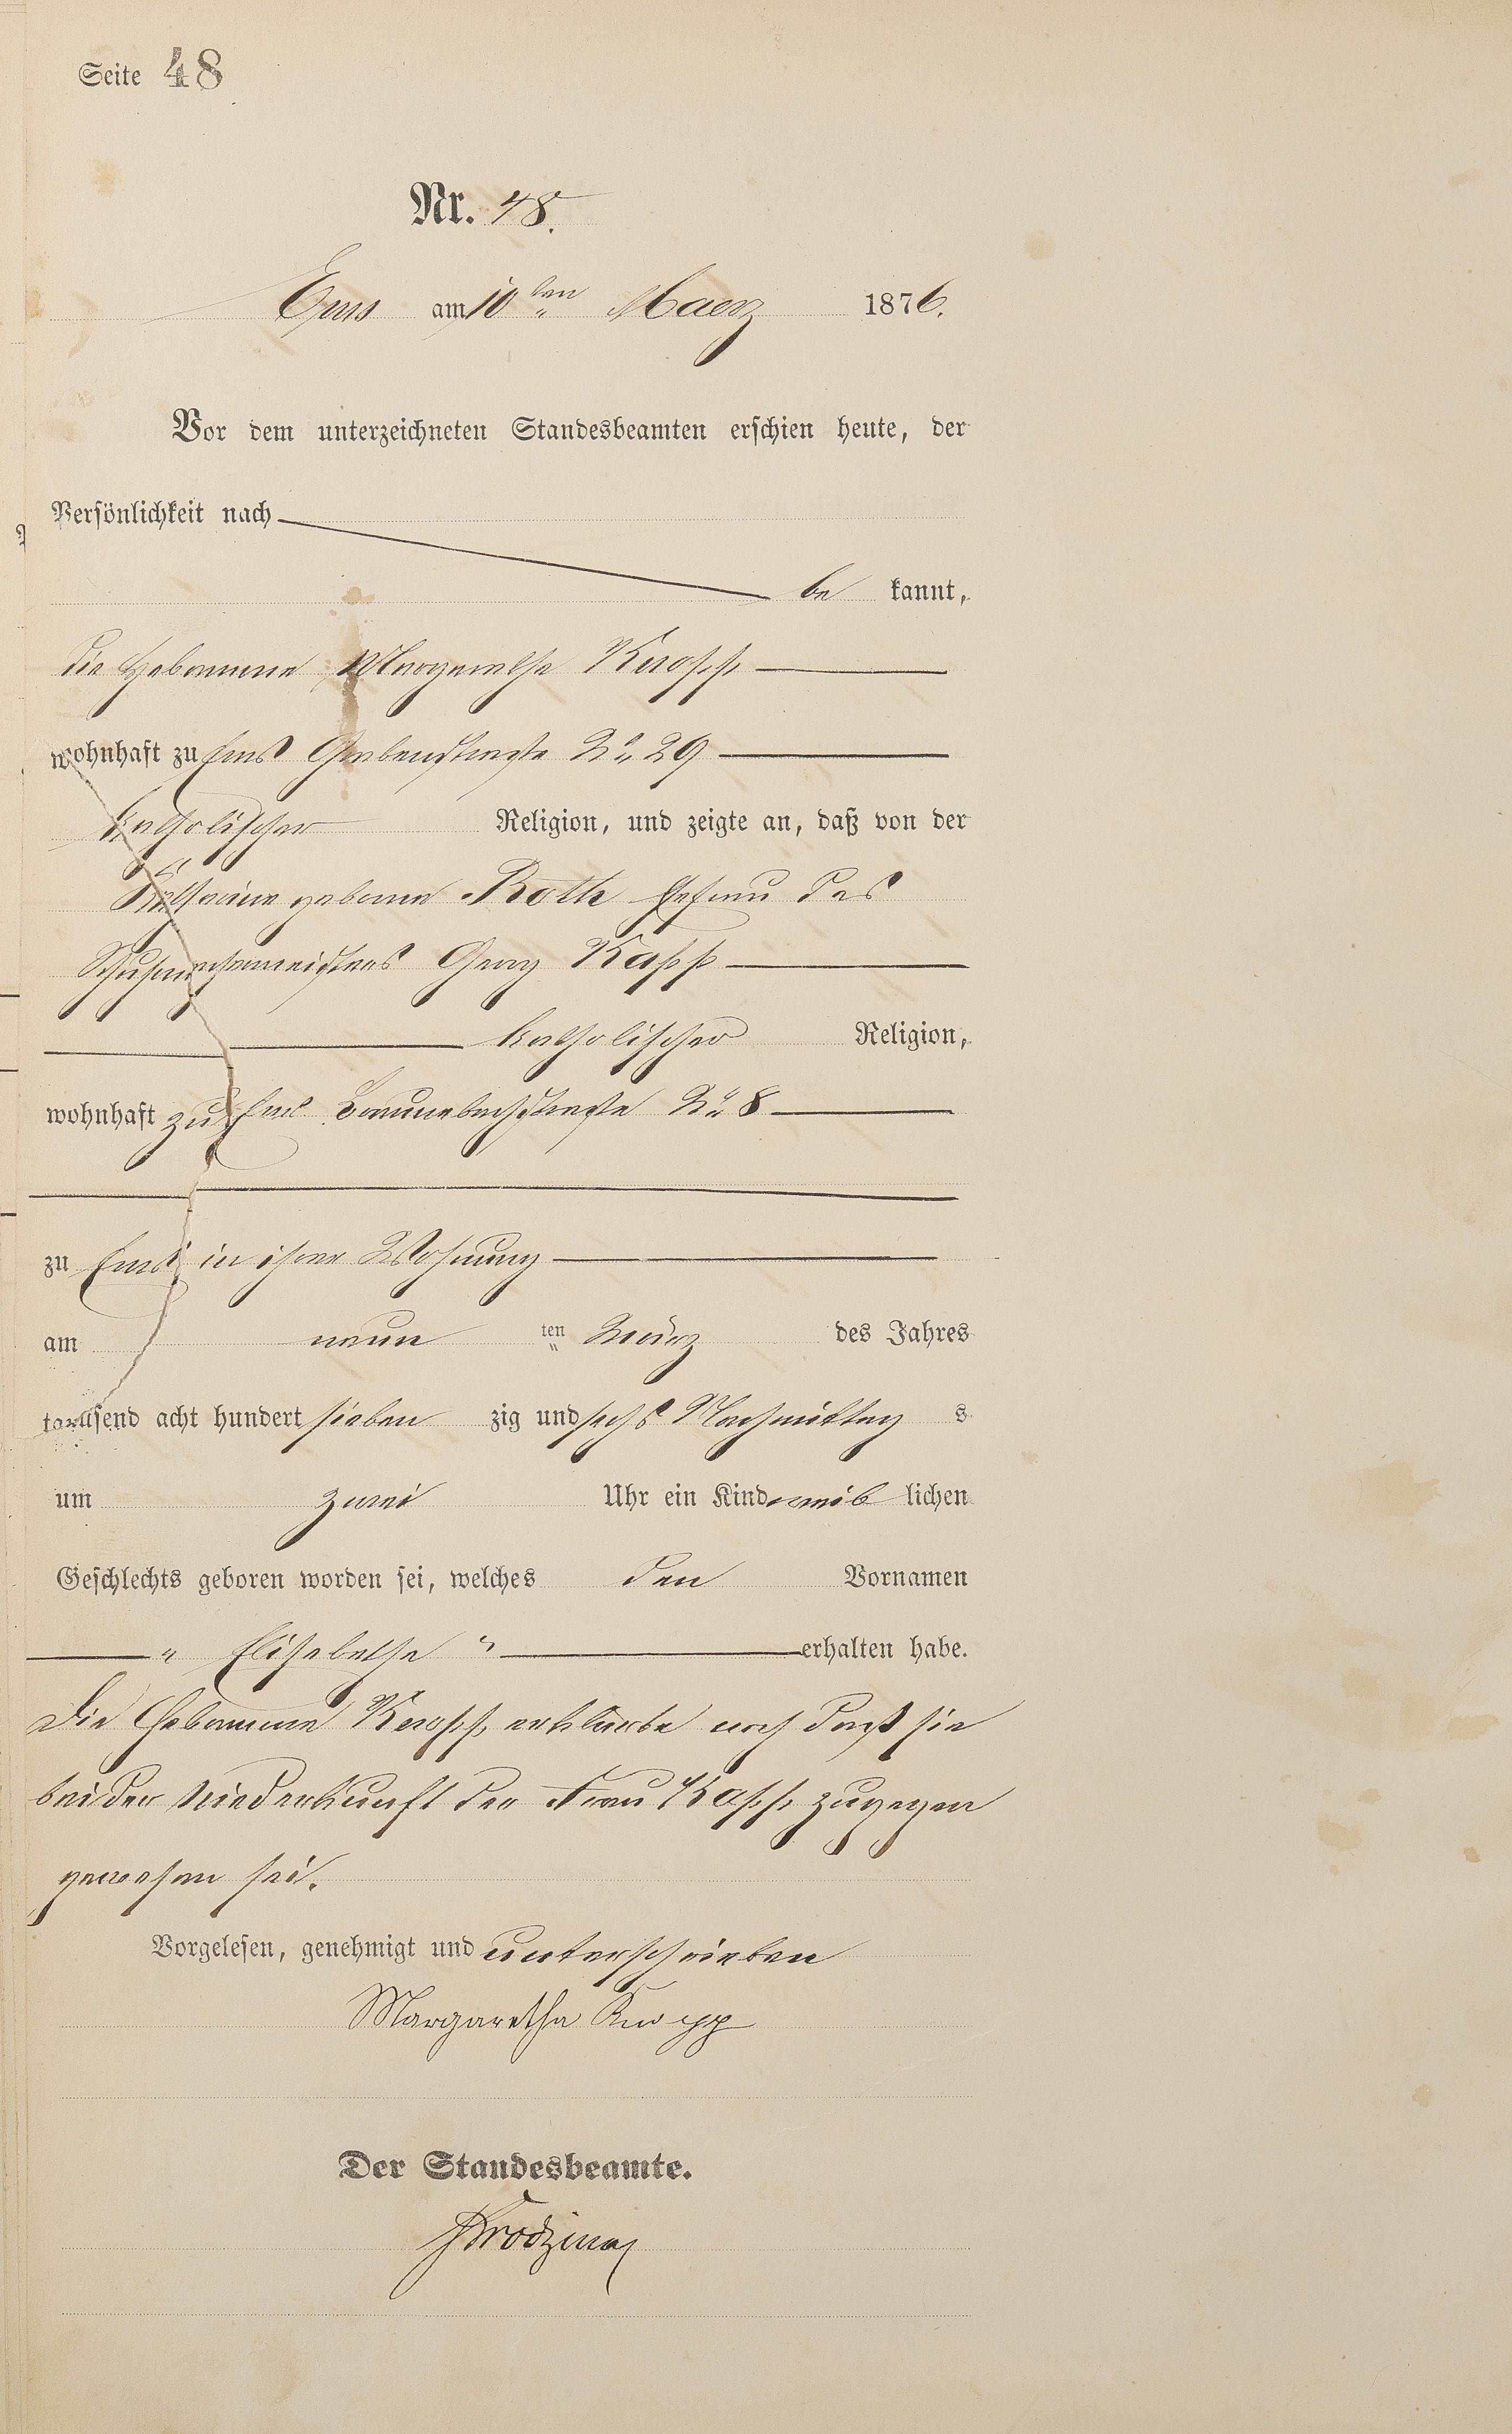 Seite 48
Nr. 48.
Ems am 10ten Maerz 1876.
Vor dem unterzeichneten Standesbeamten erschien heute, der
Persönlichkeit nach
be kannt,
die Hebamme Margarethe Knopp
wohnhaft zu Ems Grabenstraße No 29
katholischer Religion, und zeigte an, daß von der
geborne Roth Ehefrau des
Schuhmachermeisters Georg Kapp
katholischer Religion,
wohnhaft zu Ems No 8
zu Ems in ihrer Wohnung
am neun ten März des Jahres
tausend acht hundert sieben zig und sechs Nachmittag s
um zwei Uhr ein Kind weib lichen
Geschlechts geboren worden sei, welches den Vornamen
" Elisabethe " erhalten habe.
Die Hebamme Knopp erklärte noch daß sie
bei der Niederkunft der Frau Kapp zugegen
gewesen sei.
Vorgelesen, genehmigt und unterschrieben
Margaretha Knopp
Der Standesbeamte.